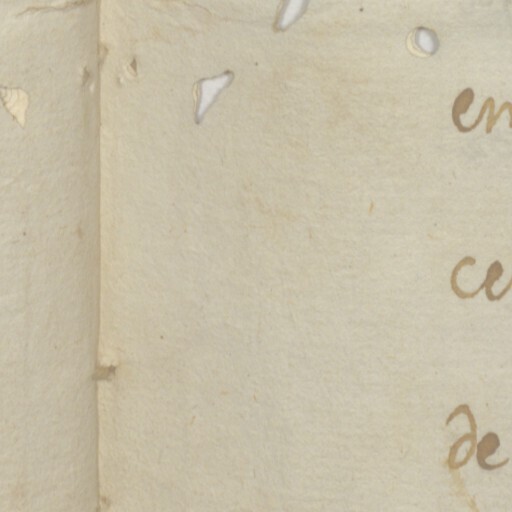 en
ce
de